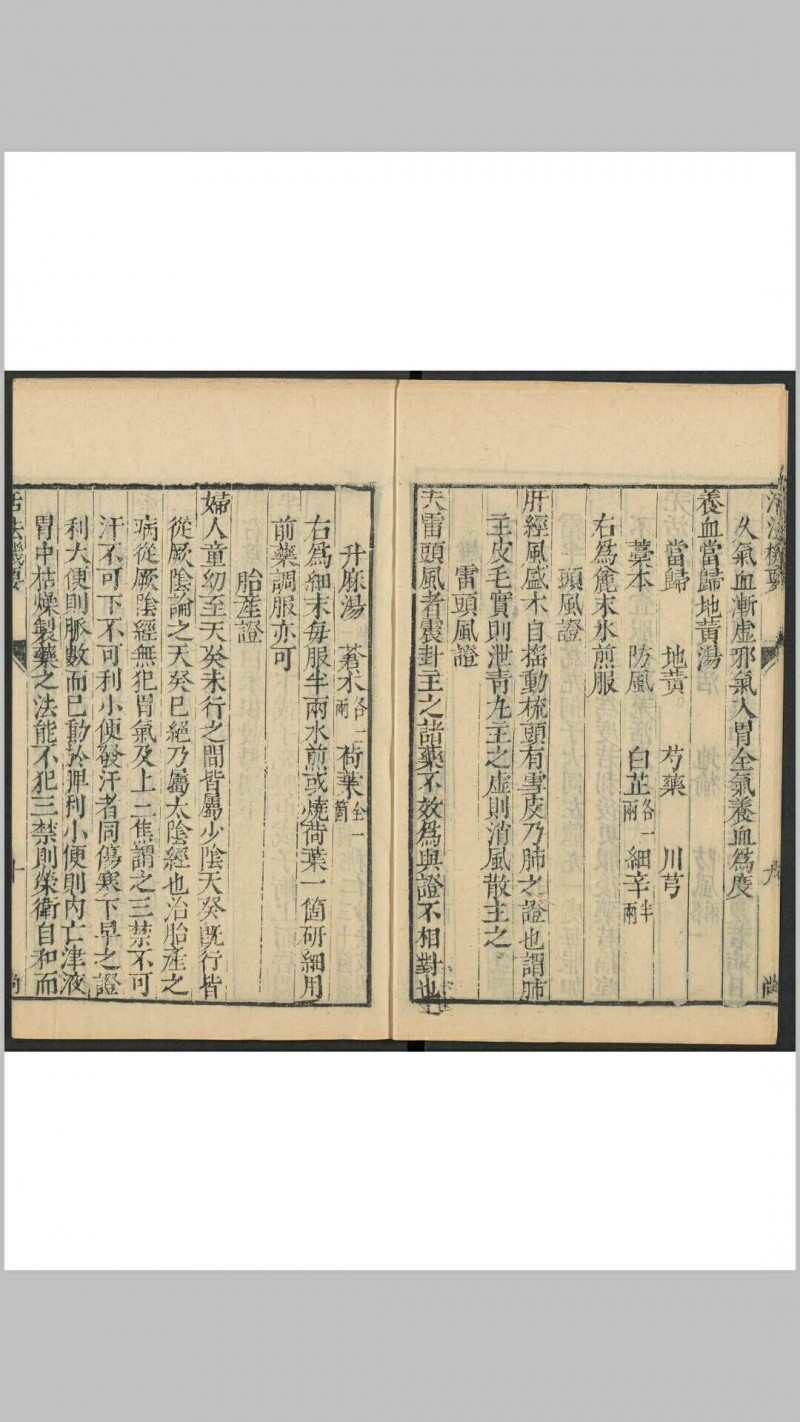 活法機要 九
久氣血漸虛邪氣入胃全氣養血爲度
養血當歸地黄湯
當歸 地黄 芍藥 川芎
藁本 防風 白芷各一兩 細辛半兩
右爲麄末水煎服
頭風證
肝經風盛木自揺動梳頭有雪皮乃肺之證也謂肺
主皮毛實則泄青丸主之虛則消風散主之
雷頭風證
夫雷頭風者震卦主之諸藥不效爲與證不相對也
升麻湯 蒼术各一兩 荷葉全一箇
右爲細末每服半兩水煎或燒荷葉一箇研細用
前藥調服亦可
胎產證
婦人童㓜至天癸未行之間皆屬少陰天癸旣行皆
從厥陰論之天癸已絕乃屬太陰經也治胎產之
病從厥陰經無犯胃氣及上二焦謂之三禁不可
汗不可下不可利小便發汗者同傷寒下早之證
利大便則脈數而已動於脾利小便則内亡津液
胃中枯燥製藥之法能不犯三禁則榮衛自和而
活法機要 十